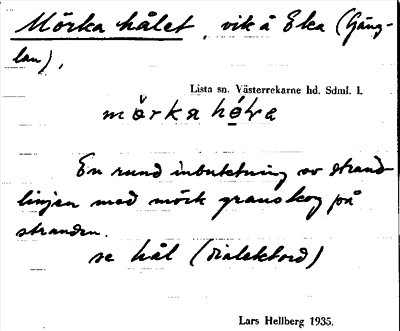 Mörka hålet, vik å Eka (Gäng-
lan),
Lista sn. Västerrekarne hd. Sdml. l.
mörka hóla
En rund inbuktning av strand-
linjen med mörk granskog på
stranden.
se hål (dialektord)
Lars Hellberg 1935.